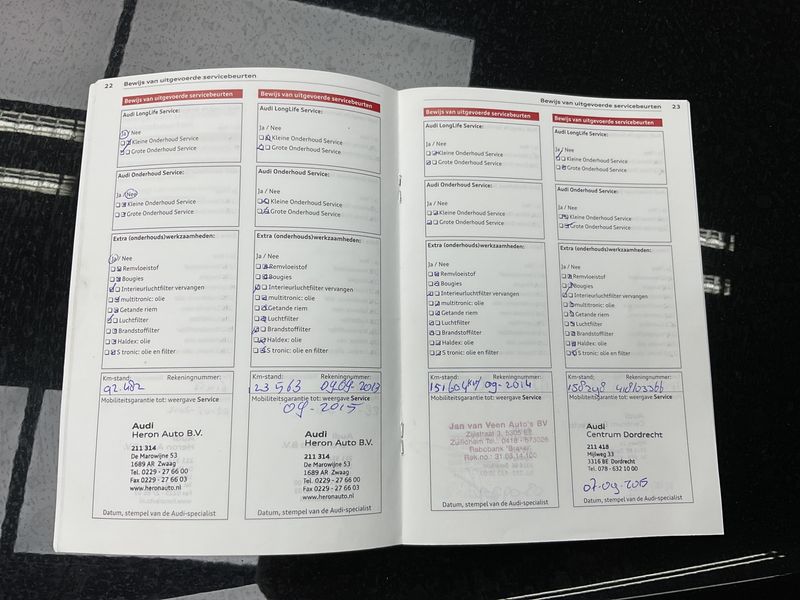 22 Bewijs van uitgevoerde servicebeurten
Bewijs van uitgevoerde servicebeurten
Audi LongLife Service:
Ja / Nee
Kleine Onderhoud Service
Grote Onderhoud Service
Audi Onderhoud Service:
Ja / Nee
Kleine Onderhoud Service
Grote Onderhoud Service
Extra (onderhouds)werkzaamheden:
Ja / Nee
Remvloeistof
Bougies
Interieurluchtfilter vervangen
multitronic: olie
Getande riem
Luchtfilter
Brandstoffilter
Haldex: olie
S tronic: olie en filter
Km-stand: Rekeningnummer:
Mobiliteitsgarantie tot: weergave Service
Audi
Heron Auto B.V.
211 314
De Marowijne 53
1689 AR Zwaag
Tel. 0229 - 27 66 00
Fax 0229 - 27 66 03
www.heronauto.nl
Datum, stempel van de Audi-specialist
Bewijs van uitgevoerde servicebeurten
Audi LongLife Service:
Ja / Nee
Kleine Onderhoud Service
Grote Onderhoud Service
Audi Onderhoud Service:
Ja / Nee
Kleine Onderhoud Service
Grote Onderhoud Service
Extra (onderhouds)werkzaamheden:
Ja / Nee
Remvloeistof
Bougies
Interieurluchtfilter vervangen
multitronic: olie
Getande riem
Luchtfilter
Brandstoffilter
Haldex: olie
S tronic: olie en filter
Km-stand: Rekeningnummer:
123563 09-09-2013
Mobiliteitsgarantie tot: weergave Service
09-2015
Audi
Heron Auto B.V.
211 314
De Marowijne 53
1689 AR Zwaag
Tel. 0229 - 27 66 00
Fax 0229 - 27 66 03
www.heronauto.nl
Datum, stempel van de Audi-specialist
Bewijs van uitgevoerde servicebeurten 23
Bewijs van uitgevoerde servicebeurten
Audi LongLife Service:
Ja / Nee
Kleine Onderhoud Service
Grote Onderhoud Service
Audi Onderhoud Service:
Ja / Nee
Kleine Onderhoud Service
Grote Onderhoud Service
Extra (onderhouds)werkzaamheden:
Ja / Nee
Remvloeistof
Bougies
Interieurluchtfilter vervangen
multitronic: olie
Getande riem
Luchtfilter
Brandstoffilter
Haldex: olie
S tronic: olie en filter
Km-stand: Rekeningnummer:
151604 KM 09-2014
Mobiliteitsgarantie tot: weergave Service
Jan van Veen Auto's BV
Zuilichem Tel.: 0418 - 673026
Datum, stempel van de Audi-specialist
Bewijs van uitgevoerde servicebeurten
Audi LongLife Service:
Ja / Nee
Kleine Onderhoud Service
Grote Onderhoud Service
Audi Onderhoud Service:
Ja / Nee
Kleine Onderhoud Service
Grote Onderhoud Service
Extra (onderhouds)werkzaamheden:
Ja / Nee
Remvloeistof
Bougies
Interieurluchtfilter vervangen
multitronic: olie
Getande riem
Luchtfilter
Brandstoffilter
Haldex: olie
S tronic: olie en filter
Km-stand: Rekeningnummer:
158298
Mobiliteitsgarantie tot: weergave Service
Audi
Centrum Dordrecht
211 418
Mijlweg 33
3316 BE Dordrecht
Tel. 078 - 632 10 00
07-09-2015
Datum, stempel van de Audi-specialist